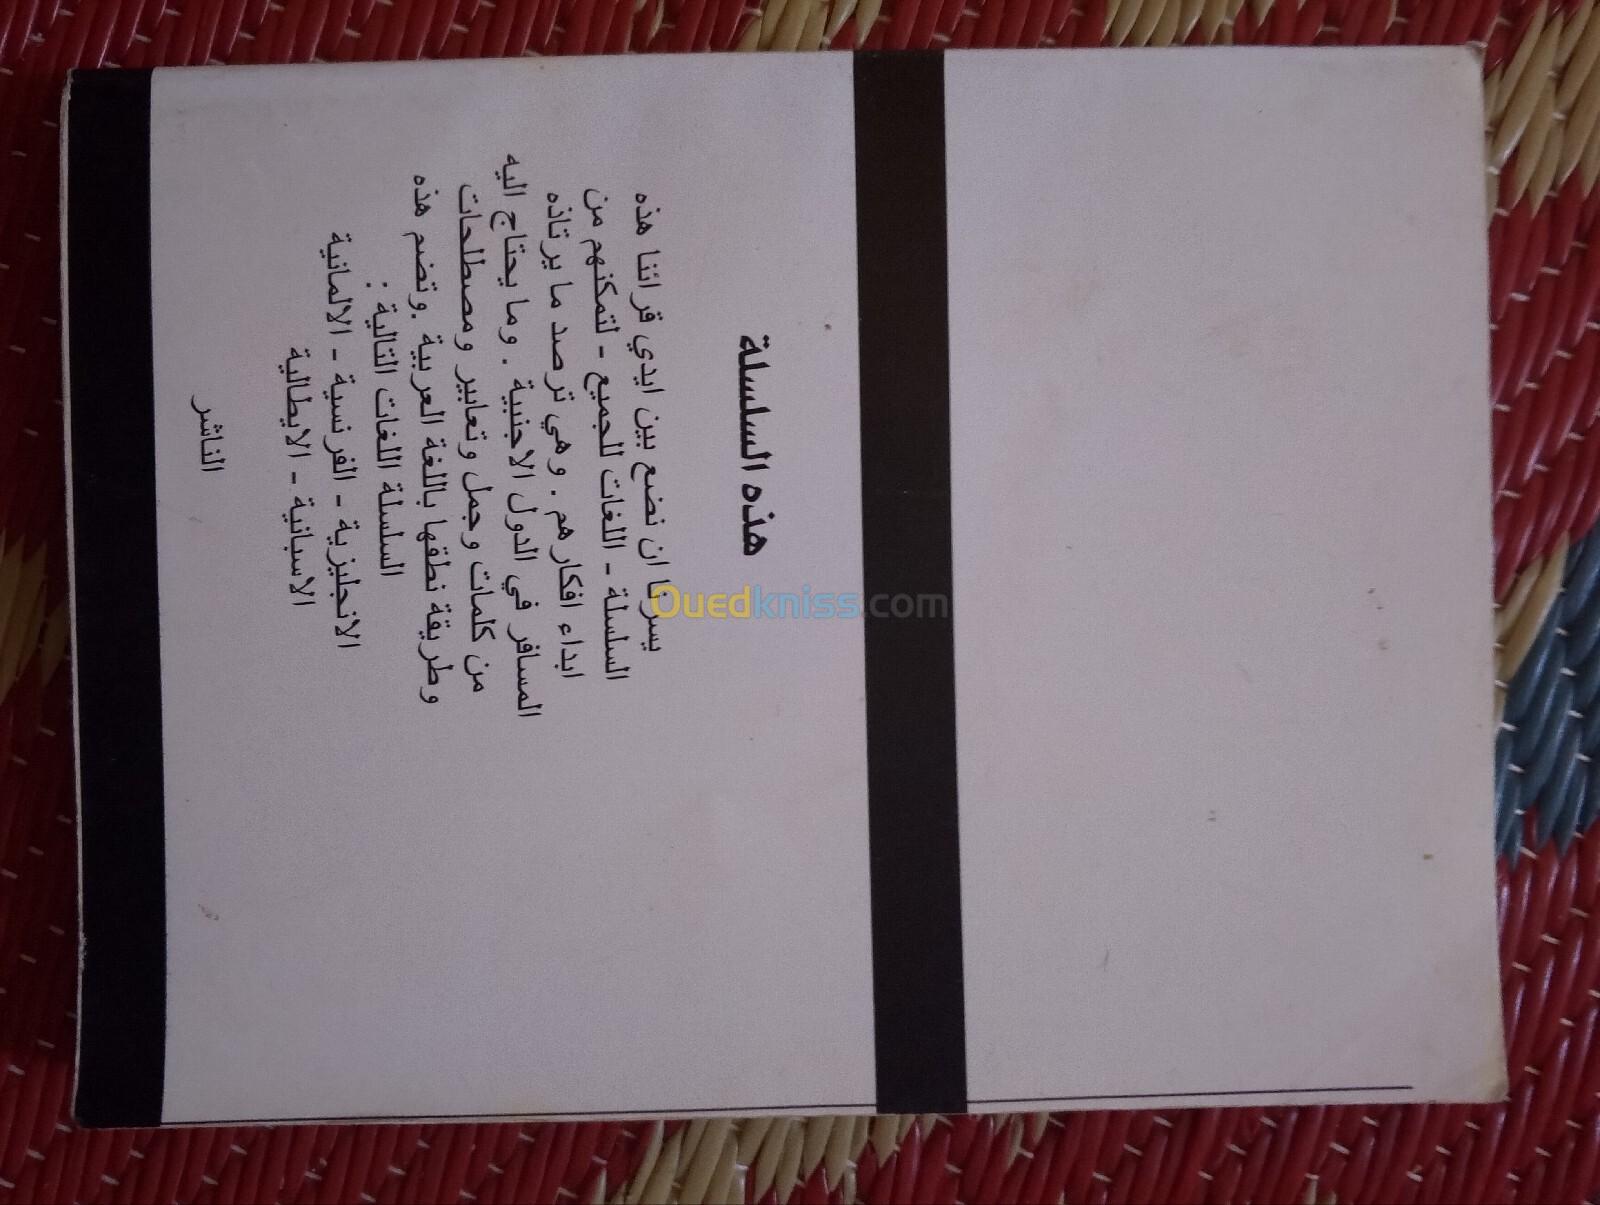 هذه السلسلة
يسرنا ان نضع بين ايدي قرائنا هذه
السلسلة - اللغات للجميع - لتمكنهم من
ابداء افكارهم . وهي ترصد ما يرتاده
المسافر في الدول الاجنبية . وما يحتاج اليه
من كلمات وجمل وتعابير ومصطلحات
وطريقة نطقها باللغة العربية .وتضم هذه
السلسلة اللغات التالية :
الانجليزية - الفرنسية - الالمانية
الاسبانية - الايطالية
الناشر
Ouedkniss.com